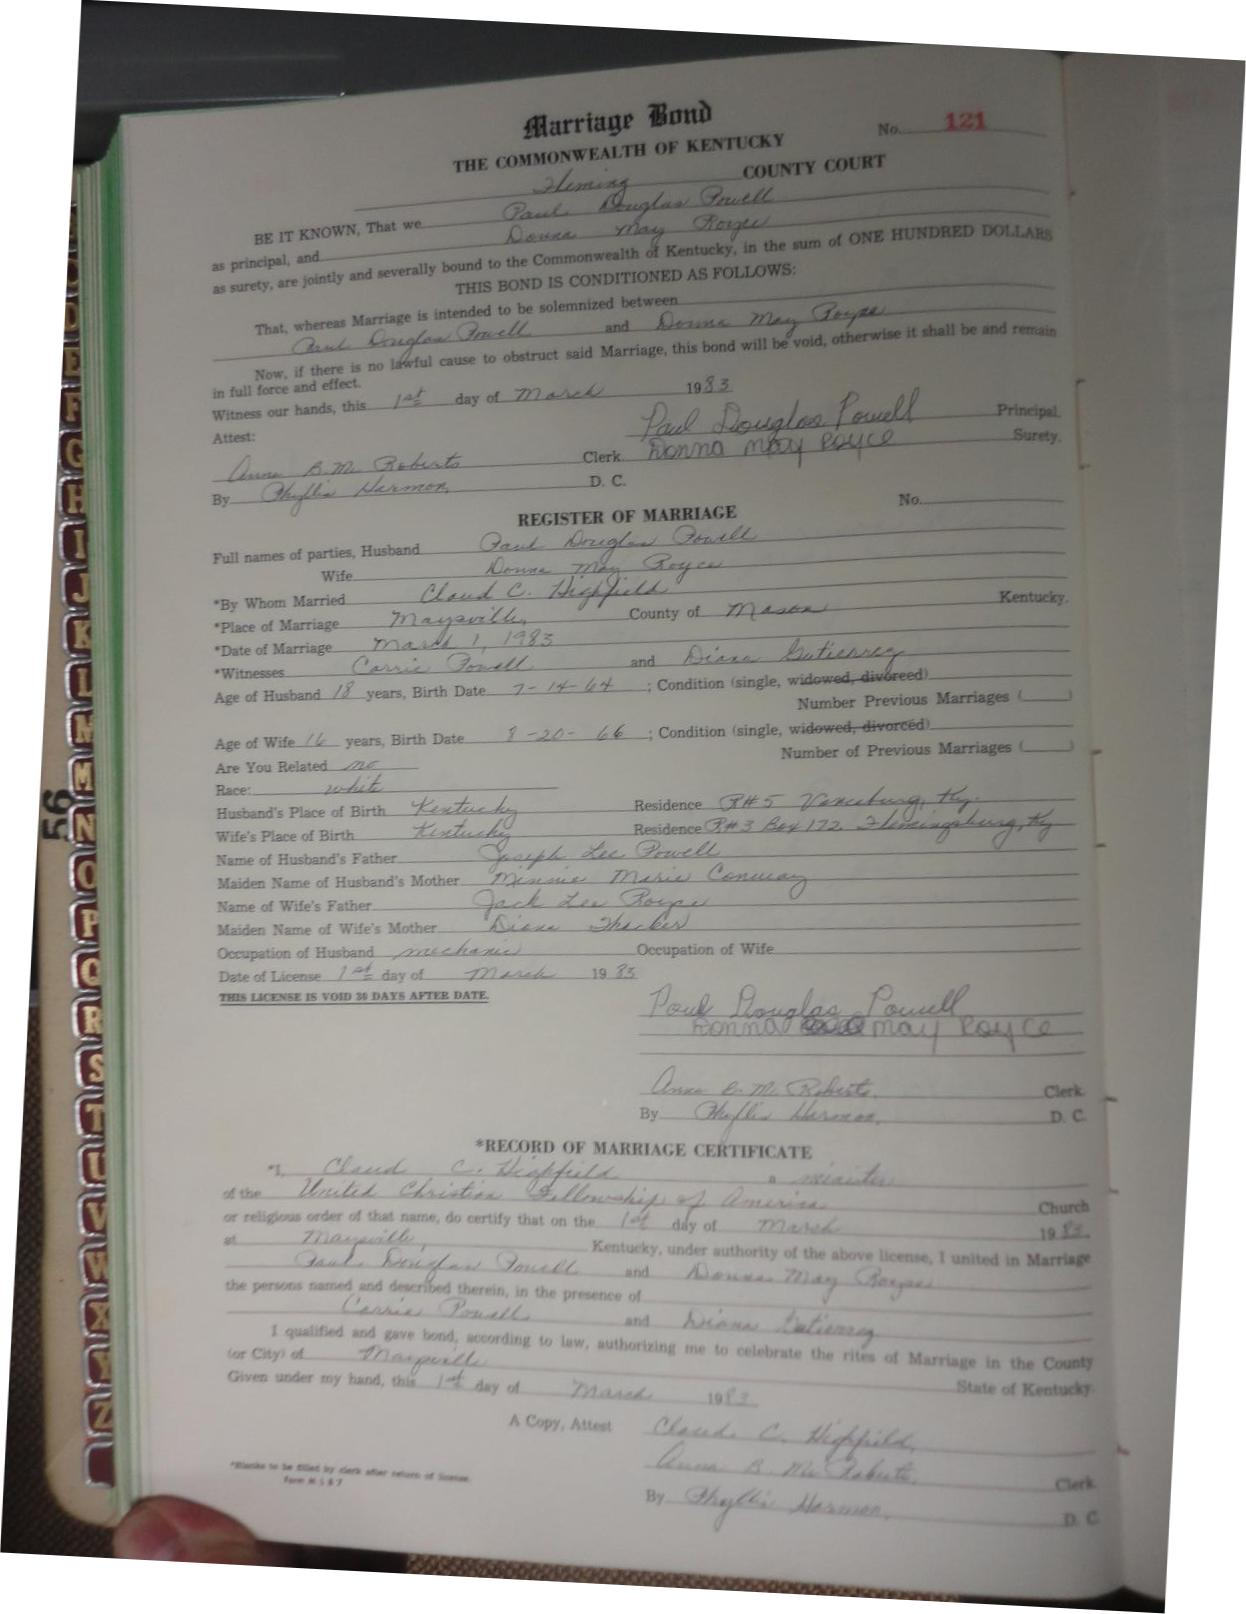 Marriage Bond
No. 121
THE COMMONWEALTH OF KENTUCKY
Fleming COUNTY COURT
BE IT KNOWN, That we Paul Douglas Powell
as principal, and Donna May Royse
as surety, are jointly and severally bound to the Commonwealth of Kentucky, in the sum of ONE HUNDRED DOLLARS
THIS BOND IS CONDITIONED AS FOLLOWS:
That, whereas Marriage is intended to be solemnized between
Paul Douglas Powell and Donna May Royse
Now, if there is no lawful cause to obstruct said Marriage, this bond will be void, otherwise it shall be and remain
in full force and effect.
Witness our hands, this 1st day of March 1983
Attest: Paul Douglas Powell Principal.
Anna B. McRoberts Clerk Donna may Royce Surety.
By Phyllis Harmon, D. C.
REGISTER OF MARRIAGE No.
Full names of parties, Husband Paul Douglas Powell
Wife Donna May Royce
*By Whom Married Claud C. Highfield
*Place of Marriage Maysville, County of Mason Kentucky.
*Date of Marriage March 1, 1983
*Witnesses Carrie Powell and Diana Gutierrez
Age of Husband 18 years, Birth Date 7-14-64 ; Condition (single, widowed, divorced)
Number Previous Marriages ( )
Age of Wife 16 years, Birth Date 8-20-66 ; Condition (single, widowed, divorced)
Number of Previous Marriages ( )
Are You Related no
Race: white
Husband's Place of Birth Kentucky Residence R#5 Vanceburg, Ky.
Wife's Place of Birth Kentucky Residence R#3 Box 172 Flemingsburg, Ky
Name of Husband's Father Joseph Lee Powell
Maiden Name of Husband's Mother Minnie Marie Conway
Name of Wife's Father Jack Lee Royse
Maiden Name of Wife's Mother Diana Thacker
Occupation of Husband mechanic Occupation of Wife
Date of License 1st day of March 1983
THIS LICENSE IS VOID 30 DAYS AFTER DATE.
Paul Douglas Powell
Donna may Royce
Anna B. McRoberts, Clerk
By Phyllis Harmon, D. C.
*RECORD OF MARRIAGE CERTIFICATE
*I, Claud C. Highfield a minister
of the United Christian Fellowship of America Church
or religious order of that name, do certify that on the 1st day of March 1983,
at Maysville, Kentucky, under authority of the above license, I united in Marriage
Paul Douglas Powell and Donna May Royse
the persons named and described therein, in the presence of
Carrie Powell and Diana Gutierrez
I qualified and gave bond, according to law, authorizing me to celebrate the rites of Marriage in the County
(or City) of Maysville State of Kentucky.
Given under my hand, this 1st day of March 1983
A Copy, Attest Claud C. Highfield,
Anna B. McRoberts, Clerk
By Phyllis Harmon, D. C.
*Blanks to be filled by clerk after return of license.
56
E
F
G
H
I
J
K
L
M
N
O
P
Q
R
S
T
U
V
W
X
Y
Z